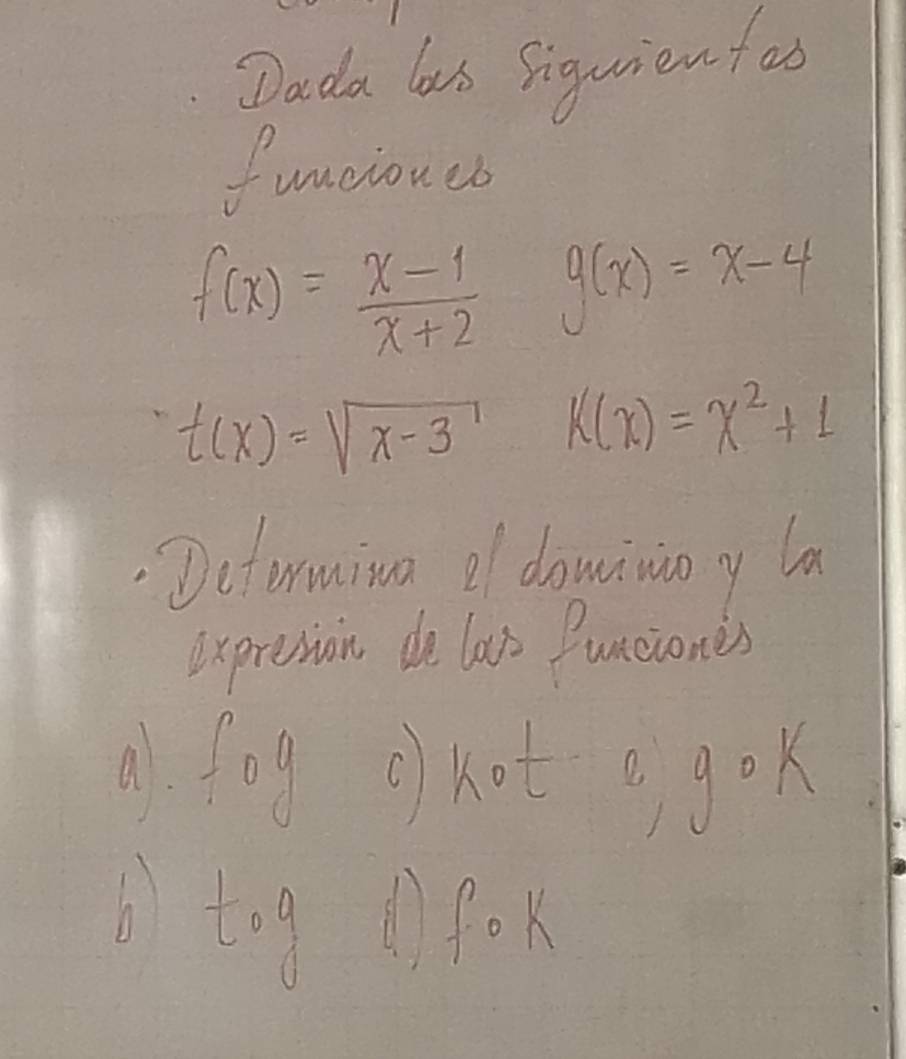 . Dada las siguientes
funciones
f(x) = \frac{x-1}{x+2} g(x) = x-4
t(x) = \sqrt{x-3} K(x) = x^2 + 1
. Determina el dominio y la
expresión de las funciones
a). f o g c) k o t e) g o K
b) t o g d) f o K